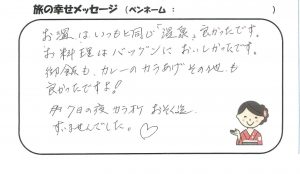 旅の幸せメッセージ (ペンネーム : )
お湯はいつもと同じ「温泉」良かったです。
お料理はバッグンにおいしかったです。
御飯も、カレーのカラあげその他も
良かったですよ!
7日の夜 カラオケ おそく迄
すいませんでした。♡